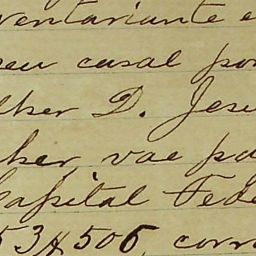 ventariante e
seu casal por
lher D. Jesu
lher, vae pa
Capital Fede
53$506, corr